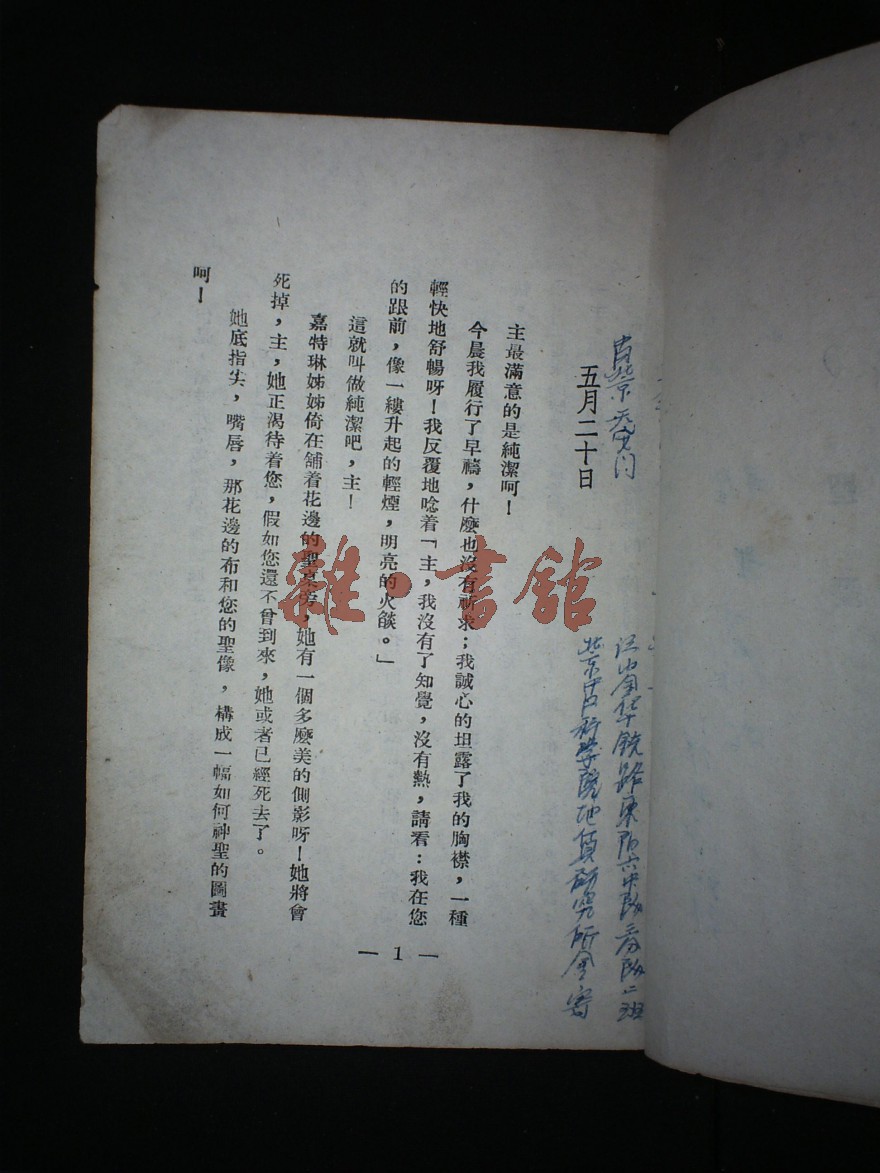 五月二十日
主最滿意的是純潔呵！
今晨我履行了早禱，什麼也沒有祈求；我誠心的坦露了我的胸襟，一種
輕快地舒暢呀！我反覆地唸着「主，我沒有了知覺，沒有熱，請看：我在您
的跟前，像一縷升起的輕煙，明亮的火燄。」
這就叫做純潔吧，主！
嘉特琳姊姊倚在舖着花邊的聖桌旁，她有一個多麼美的側影呀！她將會
死掉，主，她正渴待着您，假如您還不曾到來，她或者已經死去了。
她底指尖，嘴唇，那花邊的布和您的聖像，構成一幅如何神聖的圖畫
呵！
— 1 —
北京科学院地质研究所
雜·書館